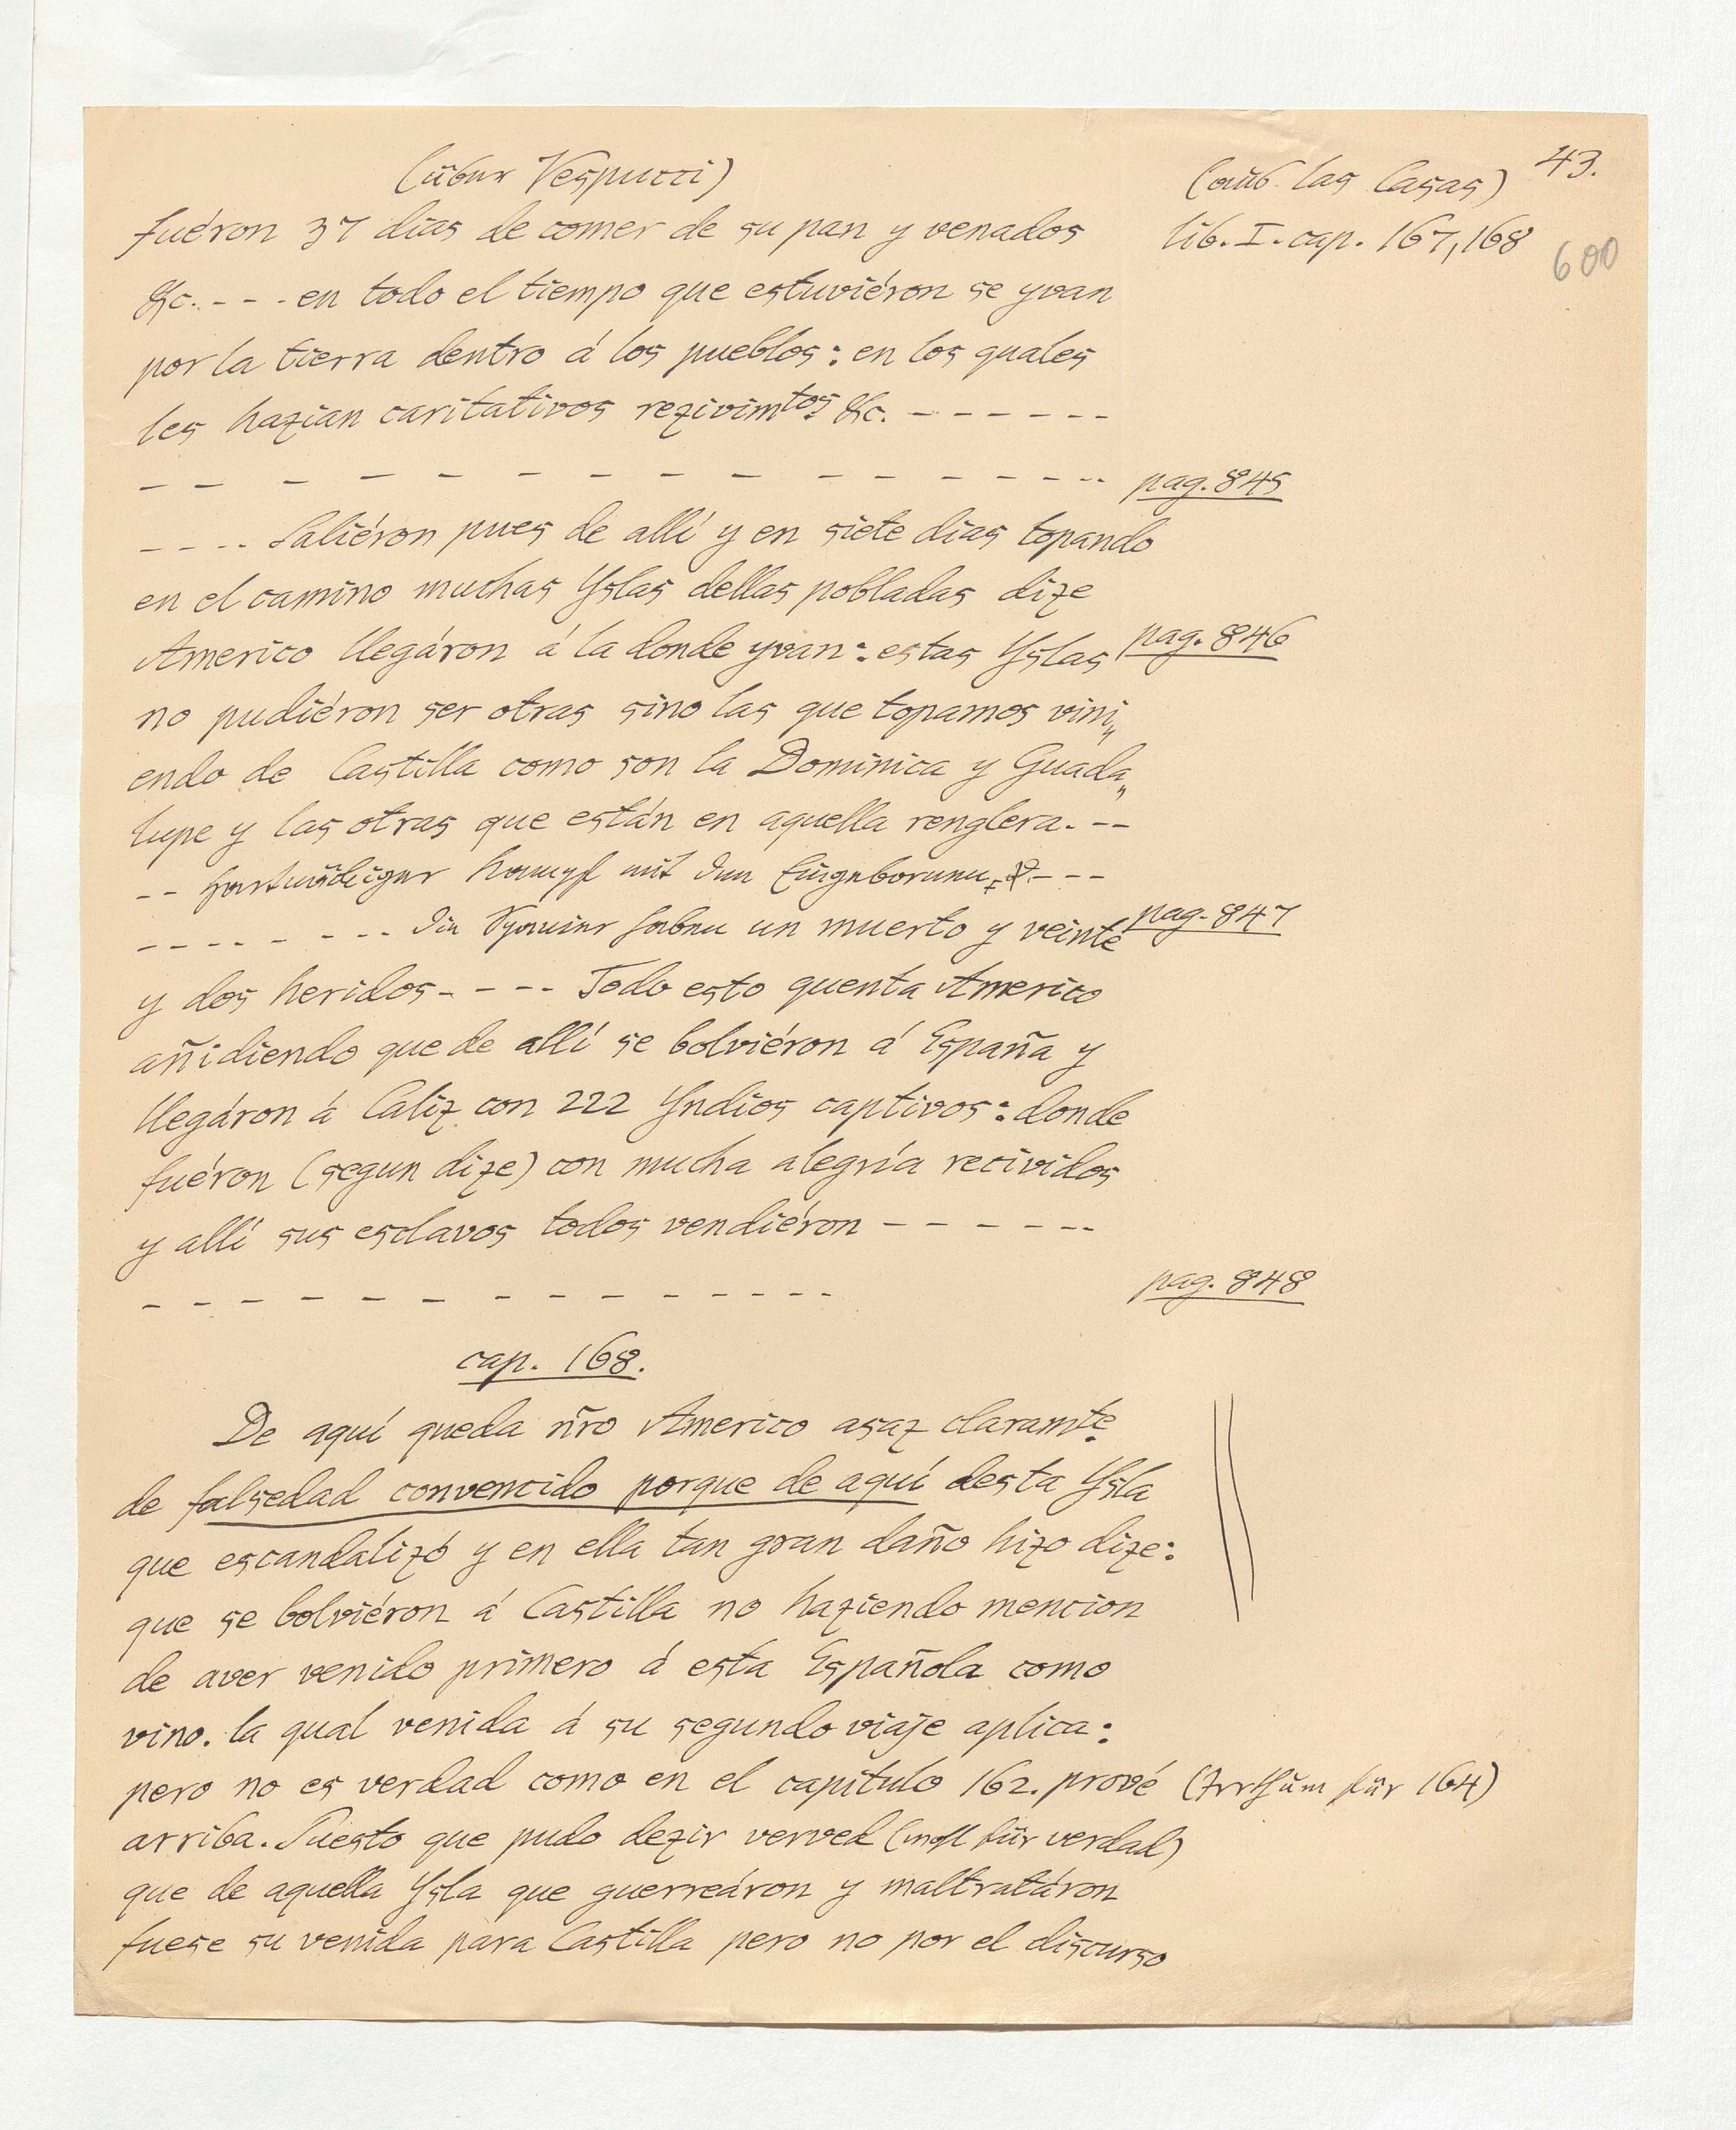 (über Vespucci)
(aus las Casas) 43.
fuéron 37 dias de comer de su pan y venados
lib. I. cap. 167, 168
600
&c. - - - en todo el tiempo que estuviéron se yvan
por la tierra dentro á los pueblos: en los quales
les hazian caritativos rezivimtos &c. - - - - - -
- - - - - - - - - - - - - - - - pag. 845
- - - - Saliéron pues de allí y en siete dias topando
en el camino muchas Yslas dellas pobladas dize
Americo llegáron á la donde yvan: estas Yslas pag. 846
no pudiéron ser otras sino las que topamos vini„
endo de Castilla como son la Dominica y Guada„
lupe y las otras que están en aquella renglera. - -
- - hartnäckiger Kampf mit den Eingeborenen - - -
- - - - - - - - die Spanier haben un muerto y veinte pag. 847
y dos heridos - - - - Todo esto quenta Americo
añidiendo que de allí se bolviéron á España y
llegáron á Caliz con 222 Yndios captivos: donde
fuéron (segun dize) con mucha alegría recividos
y allí sus esclavos todos vendiéron - - - - - -
- - - - - - - - - - - - - - pag. 848
cap. 168.
De aquí queda ñro Americo asaz claramte
de falsedad convencido porque de aquí desta Ysla
que escandalizó y en ella tan gran daño hizo dize:
que se bolviéron á Castilla no haziendo mencion
de aver venido primero á esta Española como
vino. la qual venida á su segundo viaje aplica:
pero no es verdad como en el capítulo 162. prové (Irrthum für 164)
arriba. Puesto que pudo dezir verved (wohl für verdad)
que de aquella Ysla que guerreáron y maltratáron
fuese su venida para Castilla pero no por el discurso